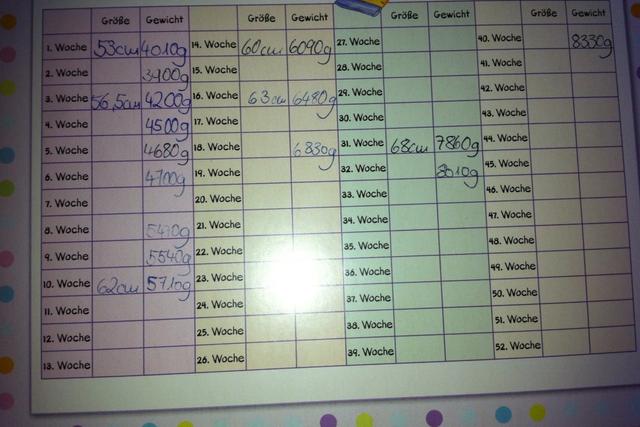 Größe Gewicht Größe Gewicht Größe Gewicht Größe Gewicht
1. Woche 53cm 4010g 14. Woche 60cm 6090g 27. Woche 40. Woche 8330g
2. Woche 3900g 15. Woche 28. Woche 41. Woche
3. Woche 56,5cm 4200g 16. Woche 63cm 6480g 29. Woche 42. Woche
4. Woche 4500g 17. Woche 30. Woche 43. Woche
5. Woche 4680g 18. Woche 6830g 31. Woche 68cm 7860g 44. Woche
6. Woche 4700g 19. Woche 32. Woche 8010g 45. Woche
7. Woche 20. Woche 33. Woche 46. Woche
8. Woche 21. Woche 34. Woche 47. Woche
9. Woche 5540g 22. Woche 35. Woche 48. Woche
10. Woche 62cm 5710g 23. Woche 36. Woche 49. Woche
11. Woche 24. Woche 37. Woche 50. Woche
12. Woche 25. Woche 38. Woche 51. Woche
13. Woche 26. Woche 39. Woche 52. Woche